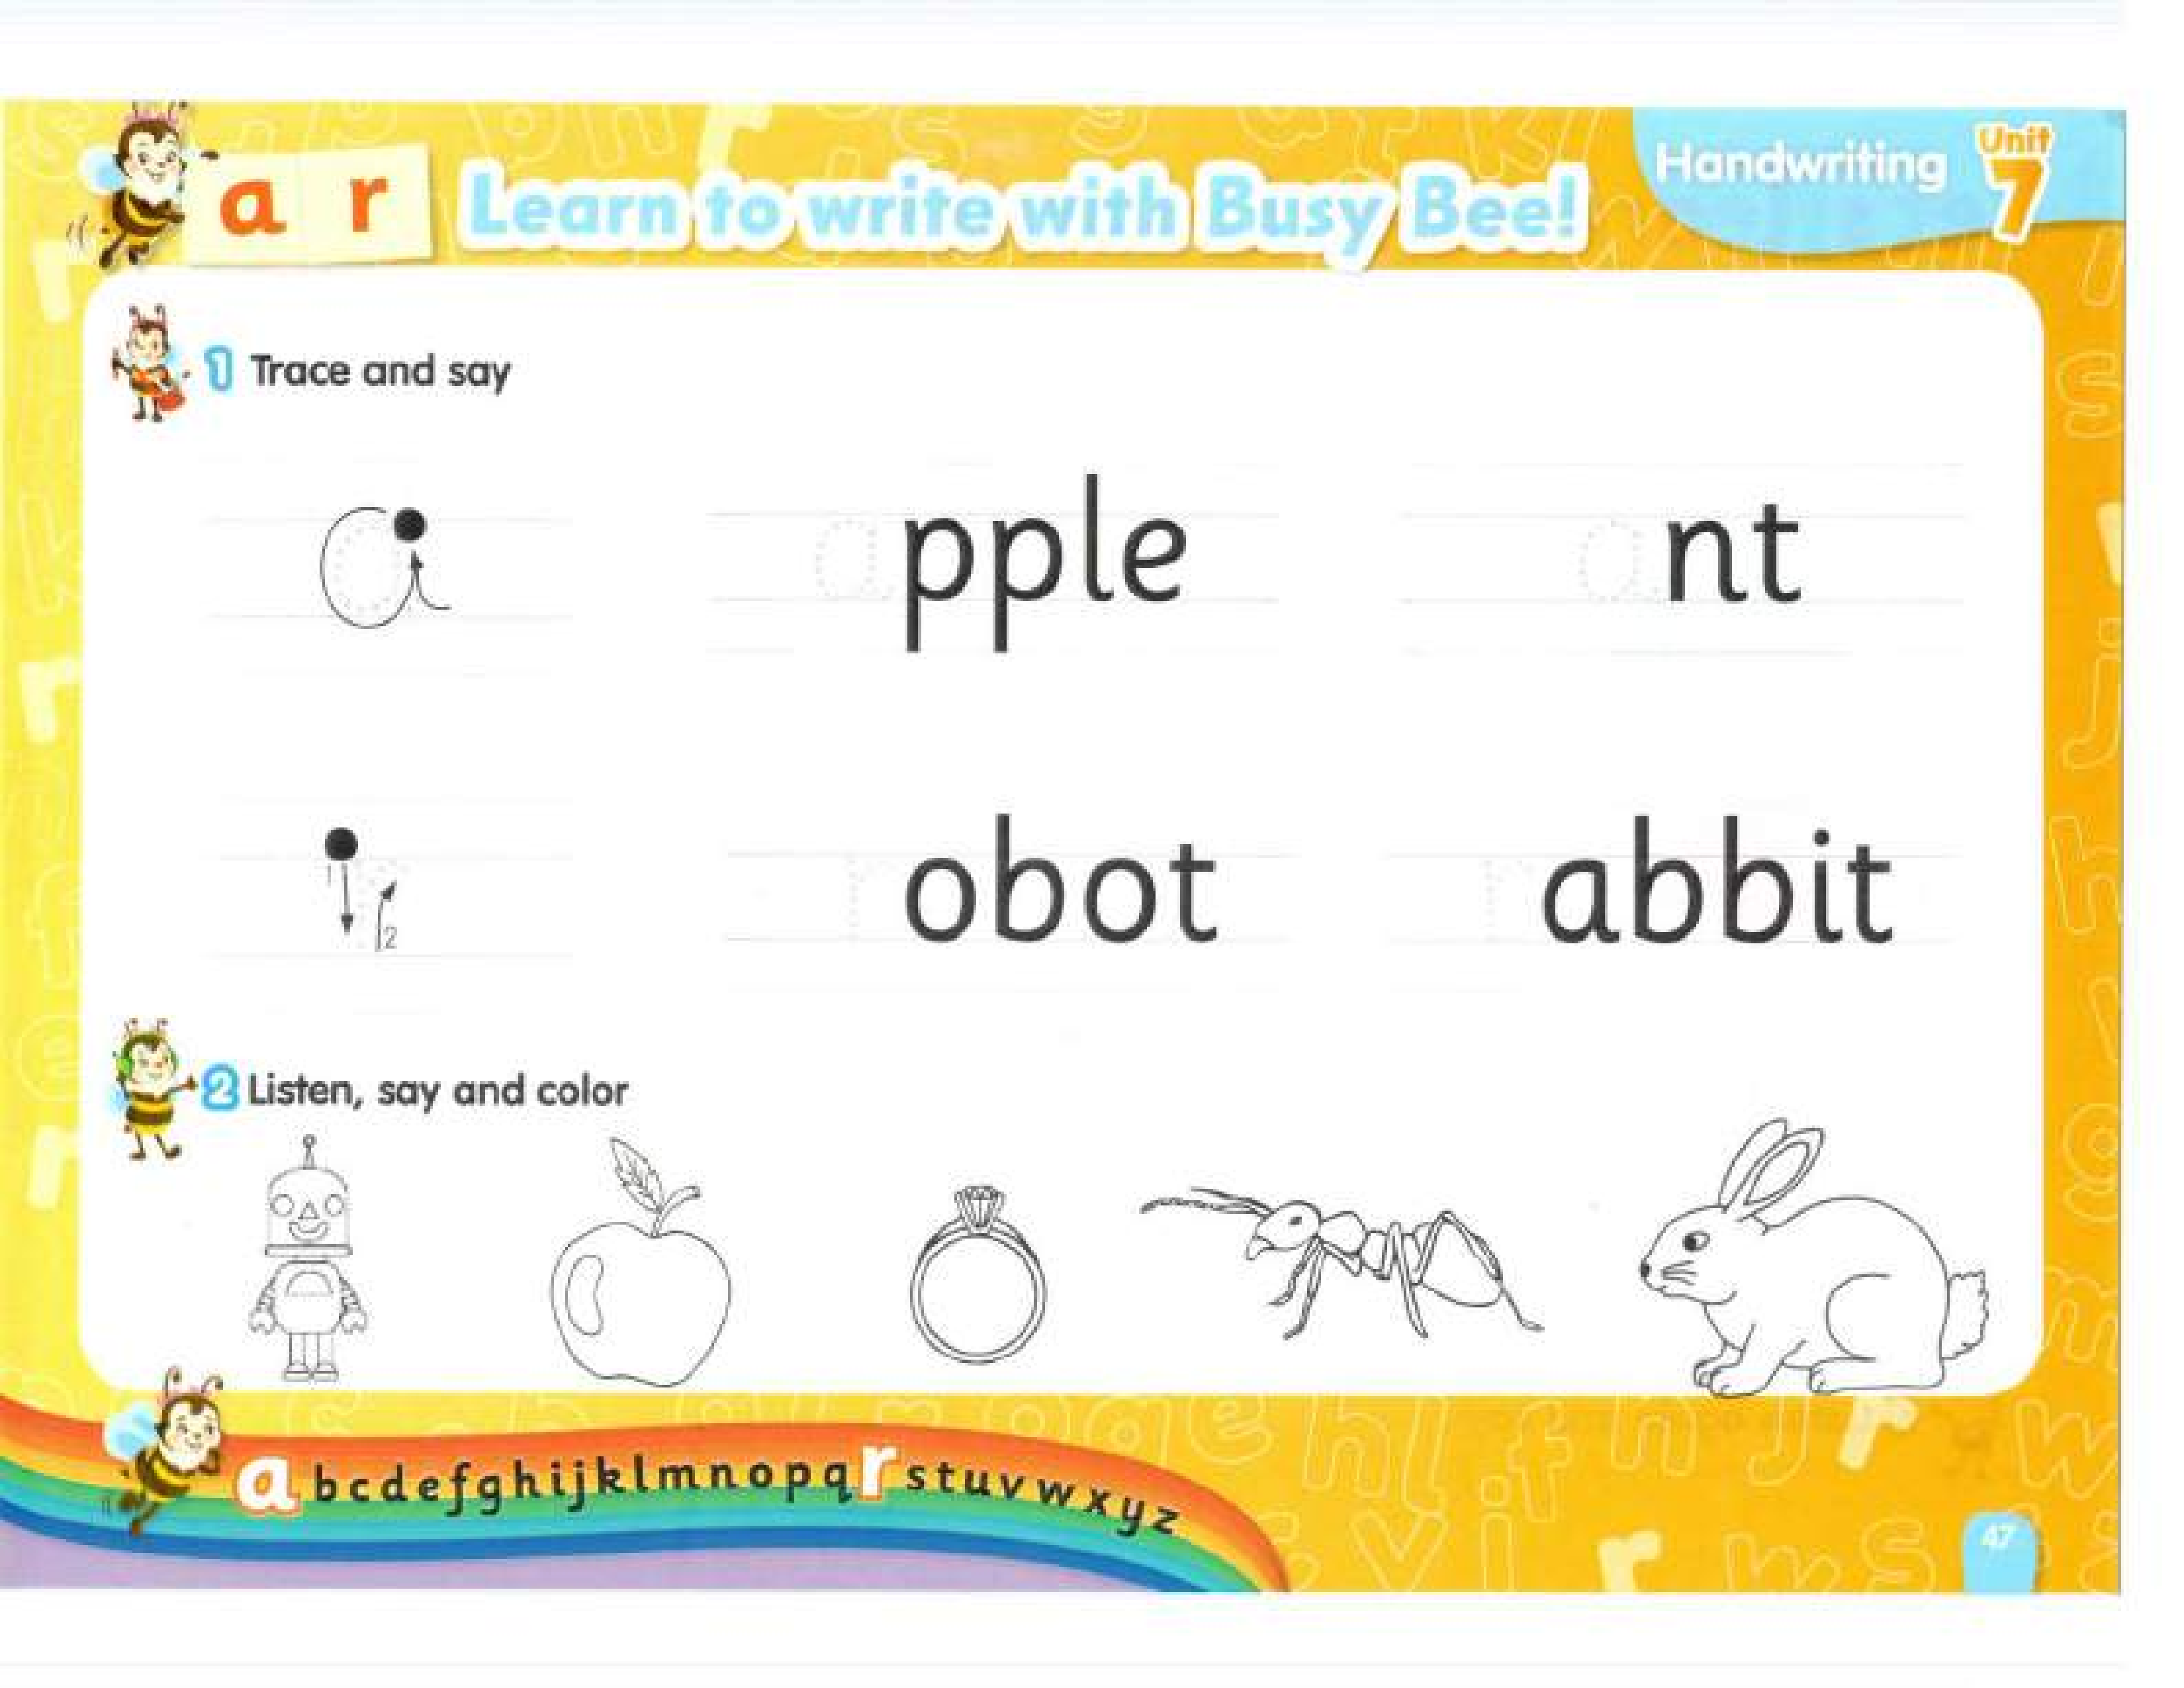 a r Learn to write with Busy Bee! Handwriting Unit 7
1 Trace and say
a apple ant
r robot rabbit
1 2
2 Listen, say and color
a b c d e f g h i j k l m n o p q r s t u v w x y z
47